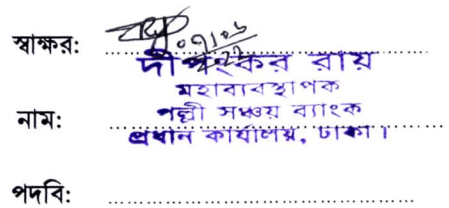 স্বাক্ষর:
দীপংকর রায়
মহাব্যবস্থাপক
নাম: পল্লী সঞ্চয় ব্যাংক
প্রধান কার্যালয়, ঢাকা।
পদবি: